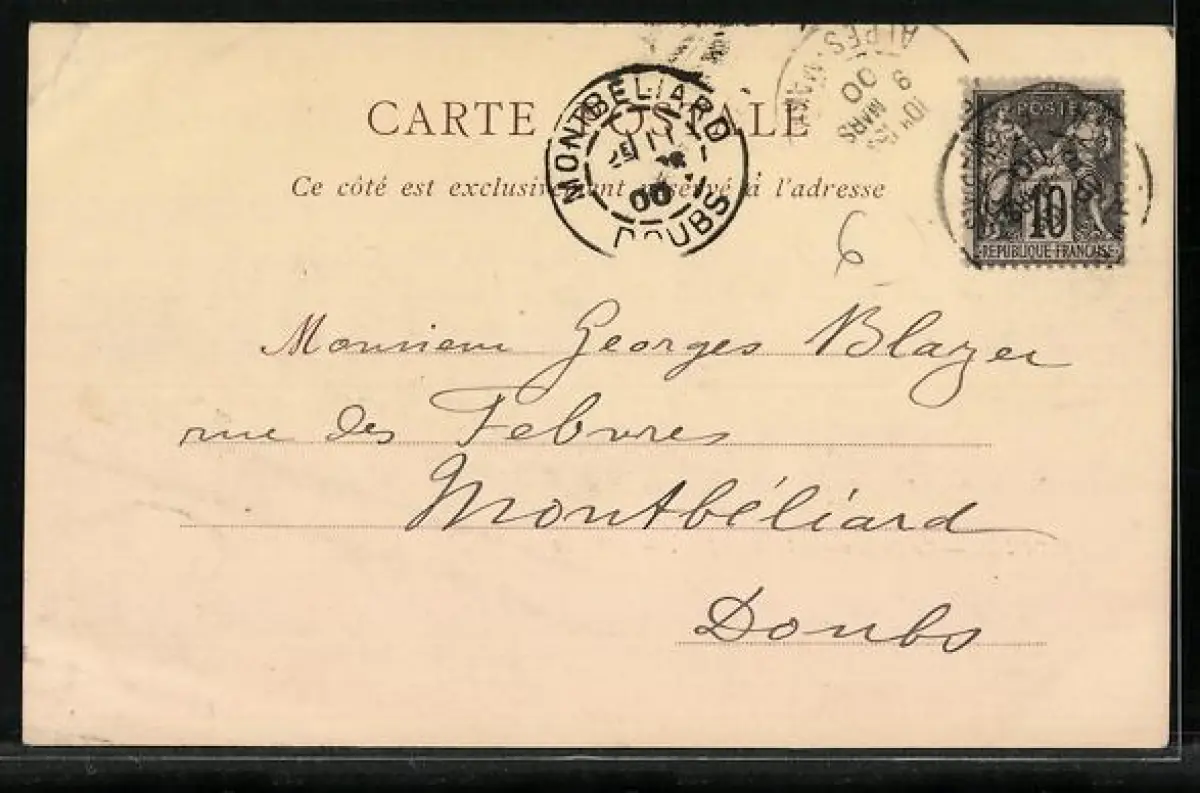 CARTE POSTALE
Ce côté est exclusivement réservé à l'adresse
MONTBELIARD
00
DOUBS
ALPES
9 MARS
00
POSTE
10
REPUBLIQUE FRANCAISE
6
Monsieur Georges Blazer
rue des Febvres
Montbéliard
Doubs